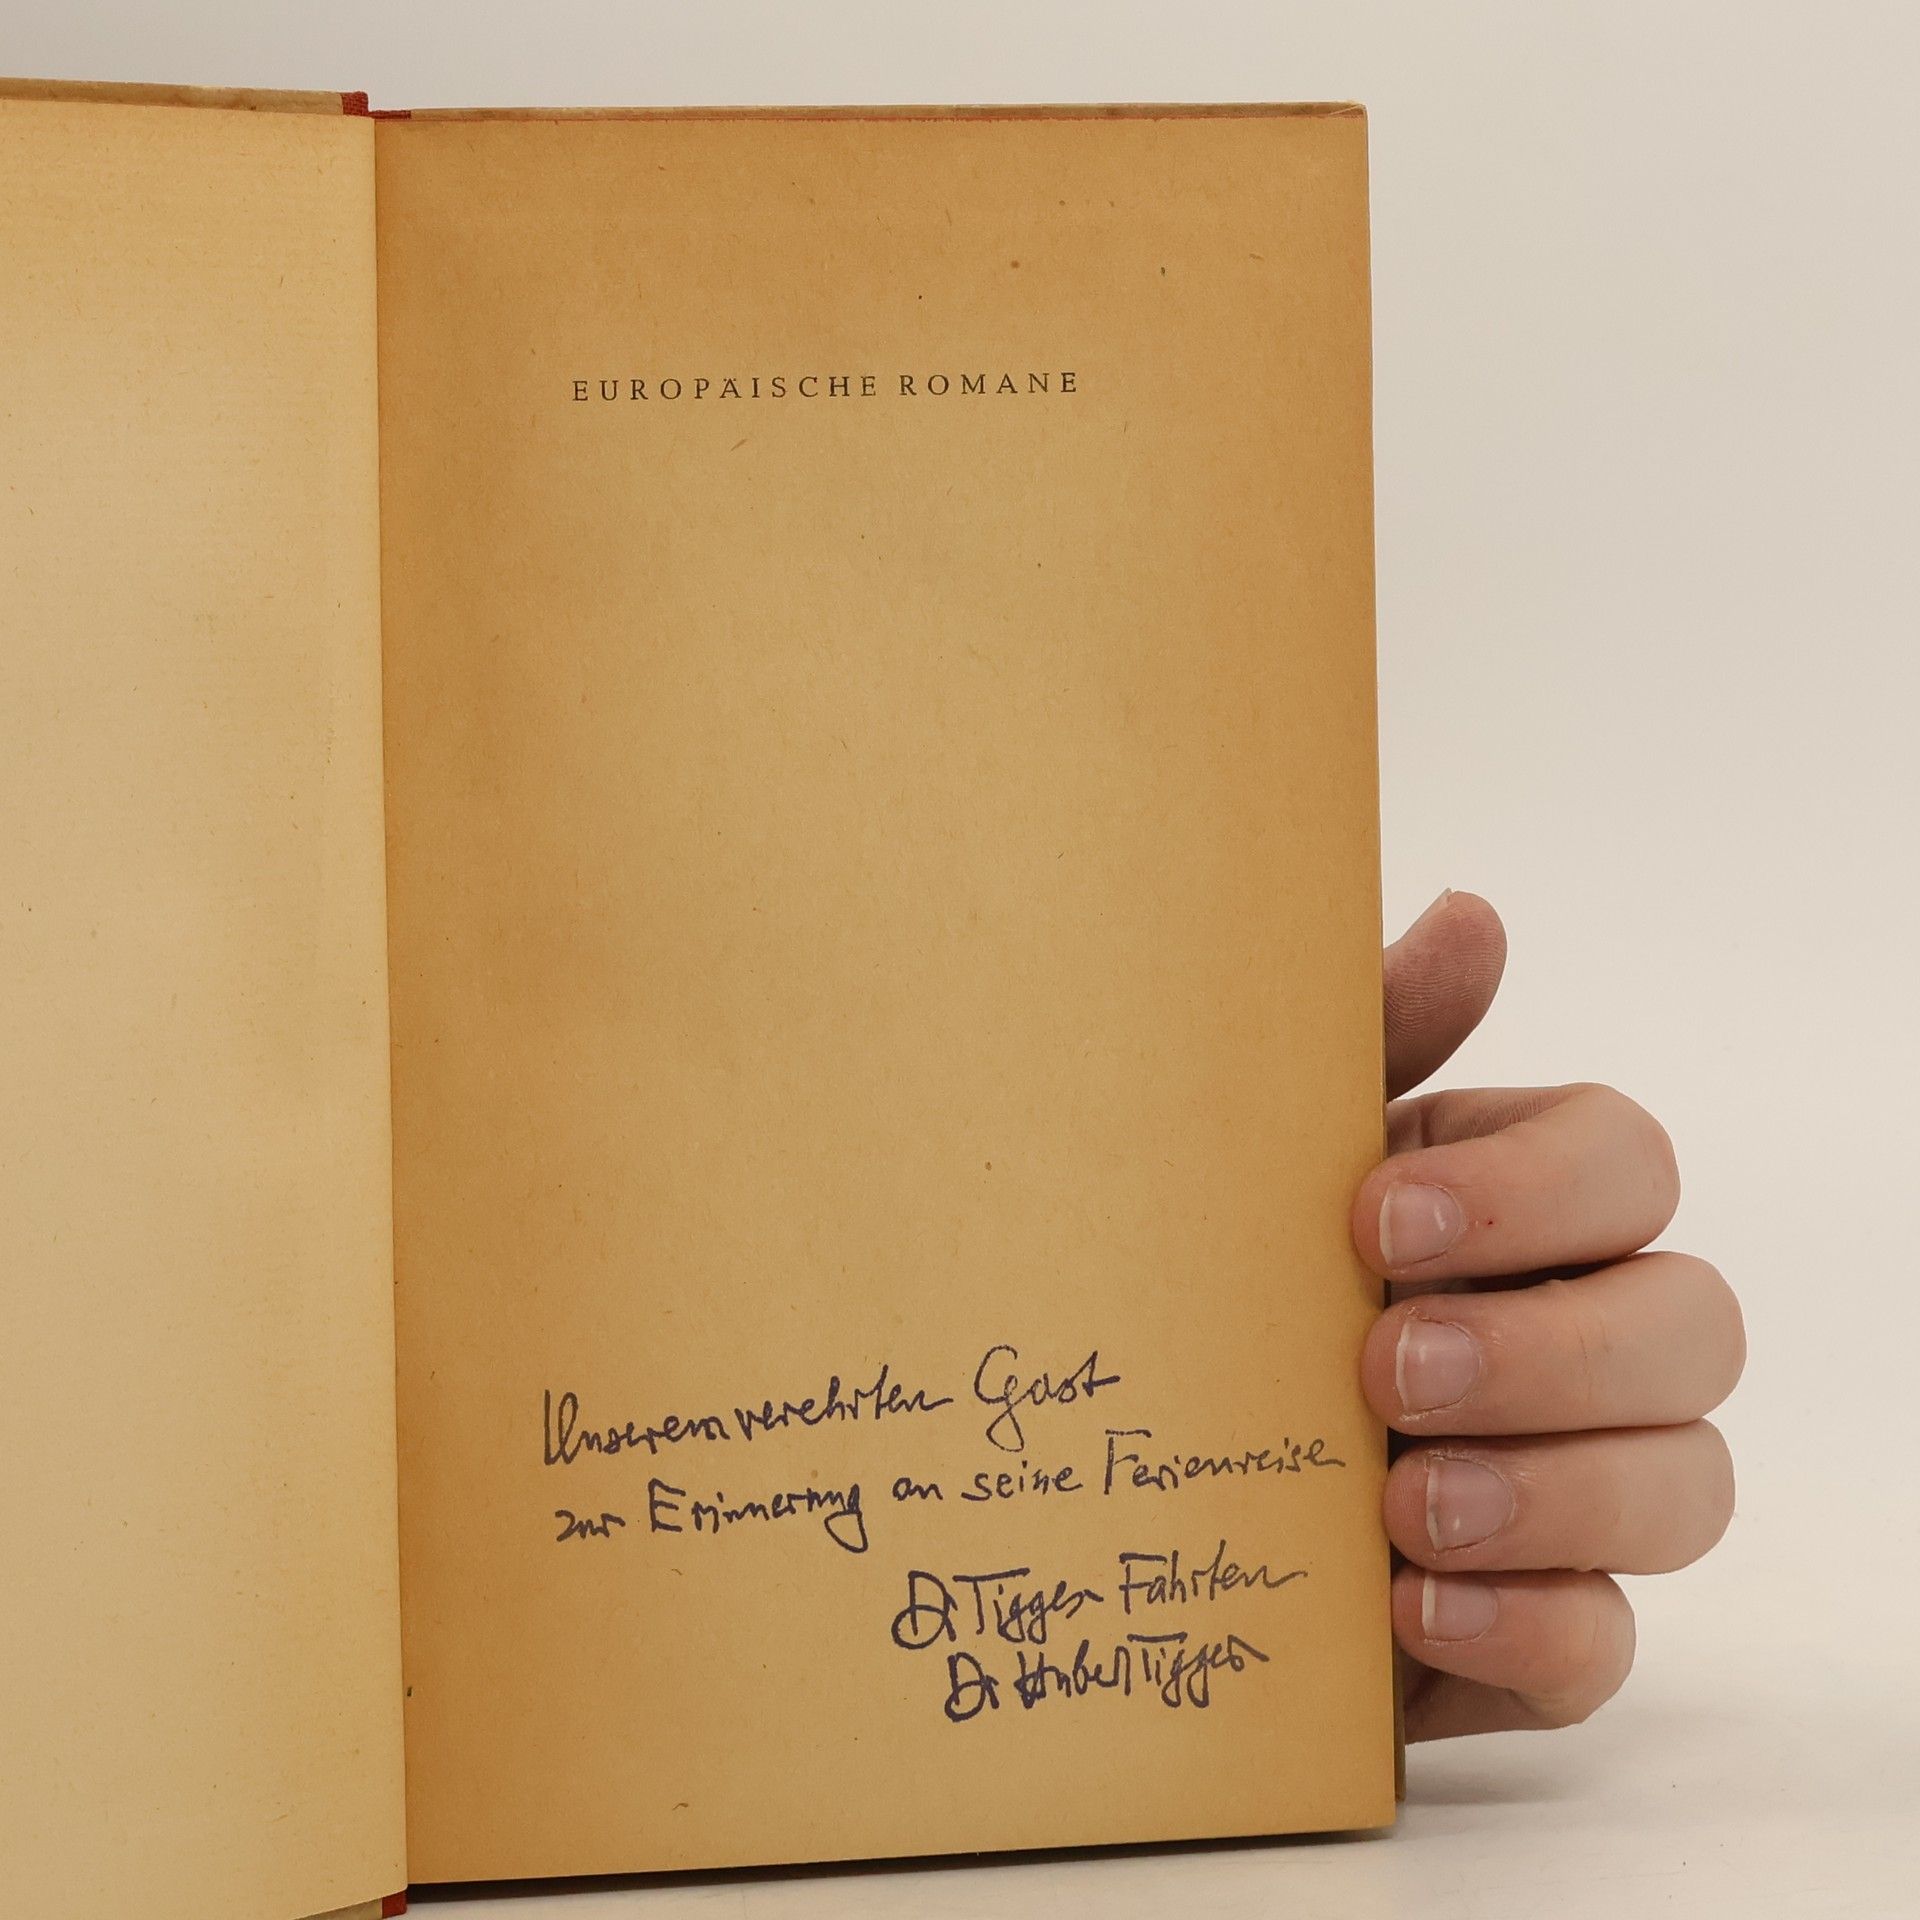 EUROPÄISCHE ROMANE
Unserem verehrten Gast
zur Erinnerung an seine Ferienreise
Dr Tigges Fahrten
Dr Hubert Tigges